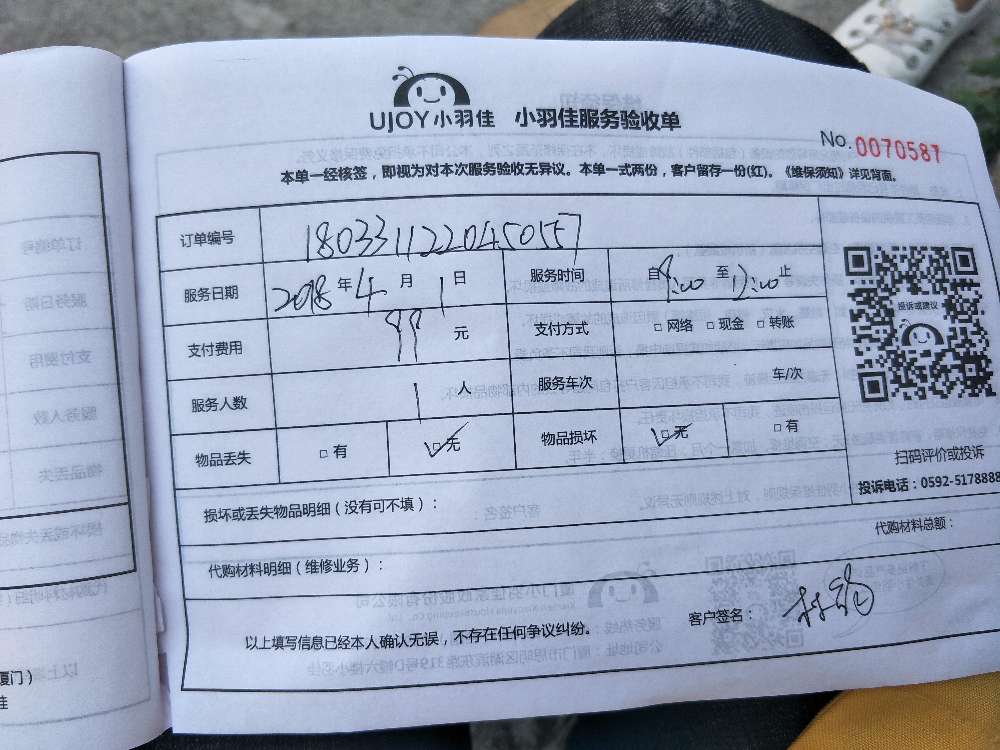 UJOY小羽佳 小羽佳服务验收单
No. 0070587
本单一经核签，即视为对本次服务验收无异议。本单一式两份，客户留存一份(红)。《维保须知》详见背面。
订单编号 1803311220450557
服务日期 2018年4月1日 服务时间 自8:00至12:00止
支付费用 99元 支付方式 □网络 □现金 □转账
服务人数 1人 服务车次 车/次
物品丢失 □有 ☑无 物品损坏 ☑无 □有
投诉或建议
扫码评价或投诉
投诉电话：0592-5178888
损坏或丢失物品明细（没有可不填）：
代购材料明细（维修业务）： 代购材料总额：
以上填写信息已经本人确认无误，不存在任何争议纠纷。 客户签名：
厦门）
佳